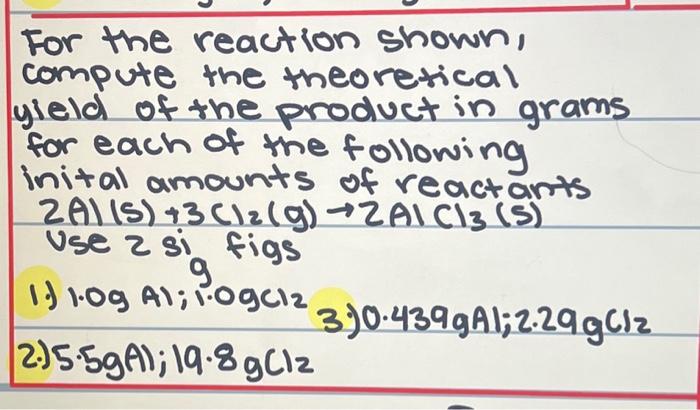 For the reaction shown,
compute the theoretical
yield of the product in grams
for each of the following
inital amounts of reactants
2Al(s)+3Cl2(g)→2AlCl3(s)
Use 2 sig figs
1.) 1.0g Al; 1.0gCl2
3.)0.439gAl;2.29gCl2
2.)5.5gAl;19.8gCl2